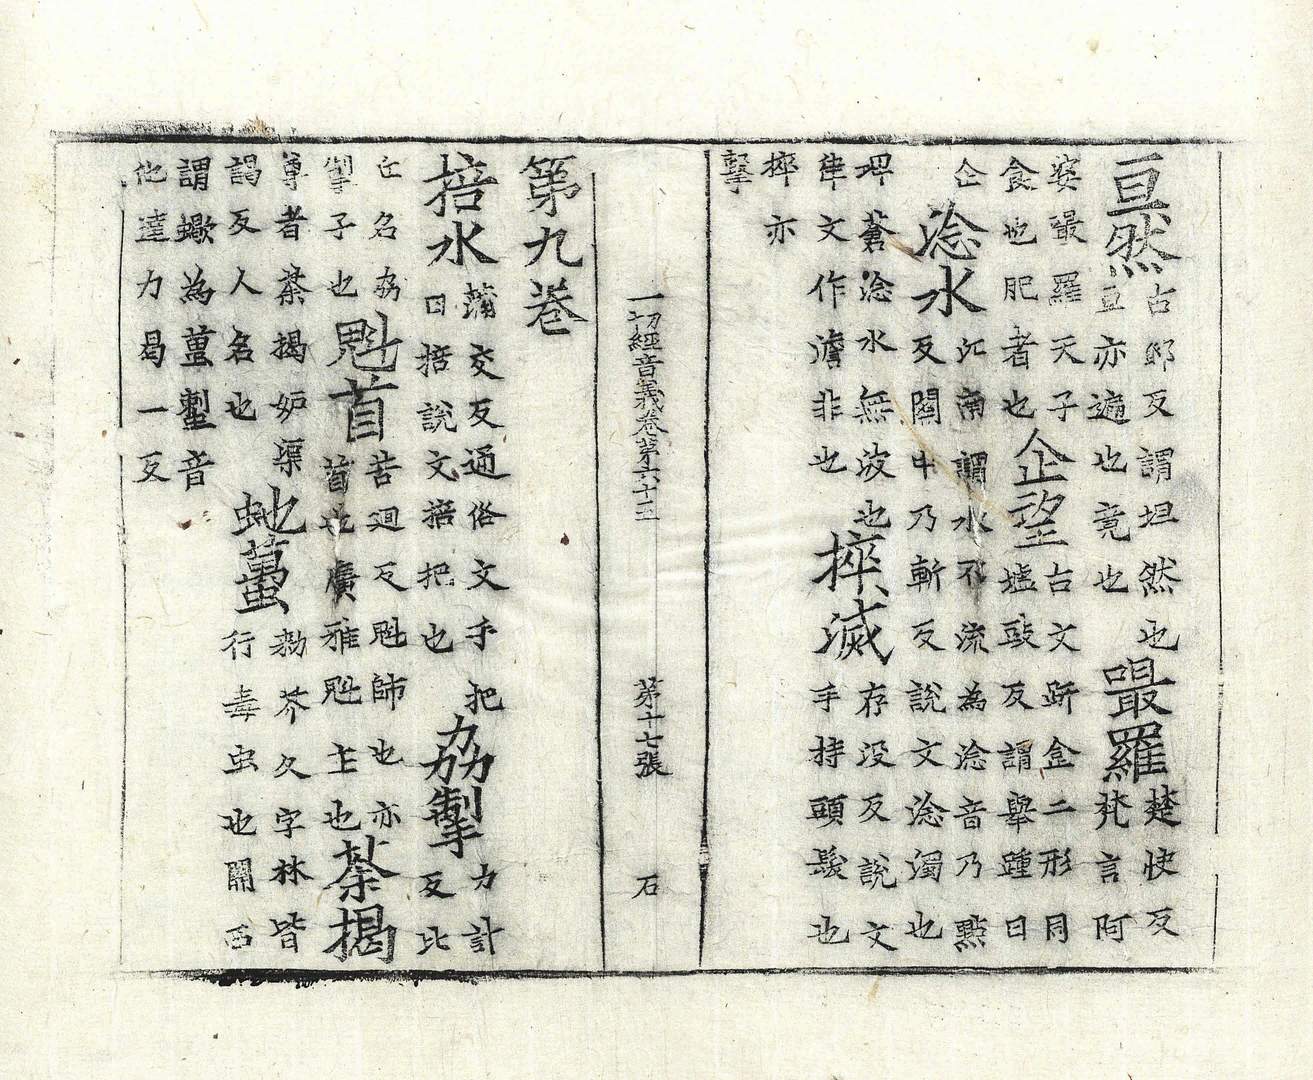 亘然
古鄧反謂坦然也
亘亦遍也竟也
嘬羅
楚快反
梵言阿
婆嘬羅天子
食也肥者也
企望
古文趼㐲二形同
墟豉反謂舉踵曰
企
淰水
江南謂水不流為淰音乃點
反關中乃斬反說文淰濁也
埤蒼淰水無波也
律文作澹非也
捽滅
存没反說文
手持頭髮也
捽亦
擊
一切經音義卷第六十五 第十七張 石
第九卷
掊水
蒲交反通俗文手把
曰掊說文掊把也
劦掣
力計
反比
丘名劦
掣子也
魁首
苦迴反魁師也亦
首也廣雅魁主也
荼揭
尊者荼揭妬渠
謁反人名也
虵蠆
勑芥久字林皆
行毒虫也關西
謂蠍為蠆音
他達力曷一反